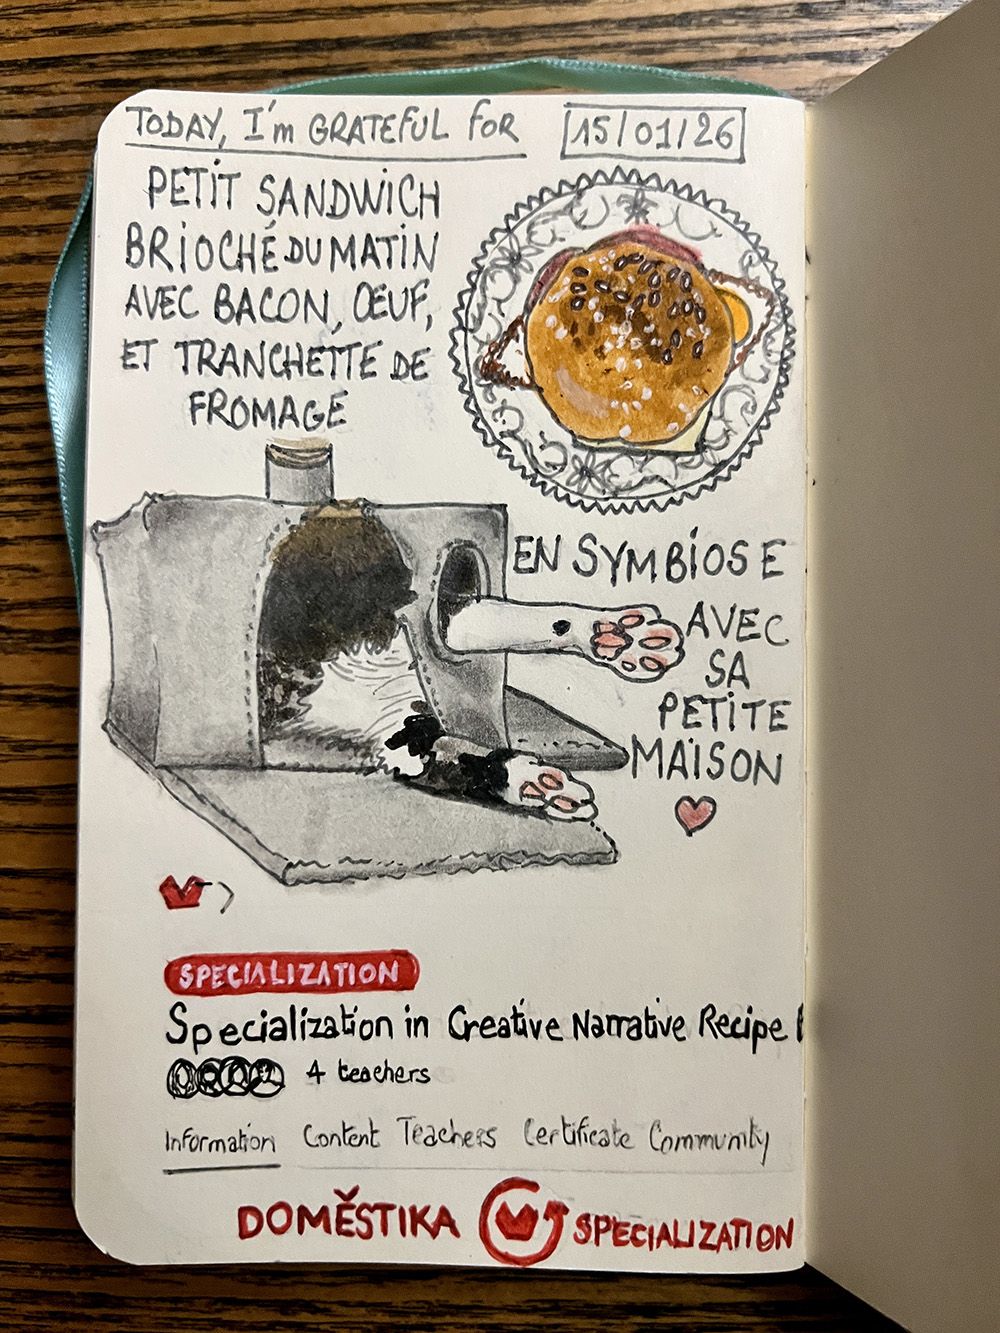 TODAY, I'm GRATEFUL FOR
15/01/26
PETIT SANDWICH
BRIOCHÉ DU MATIN
AVEC BACON, ŒUF,
ET TRANCHETTE DE
FROMAGE
EN SYMBIOSE
AVEC
SA
PETITE
MAISON
SPECIALIZATION
Specialization in Creative Narrative Recipe
4 teachers
Information Content Teachers Certificate Community
DOMĚSTIKA SPECIALIZATION